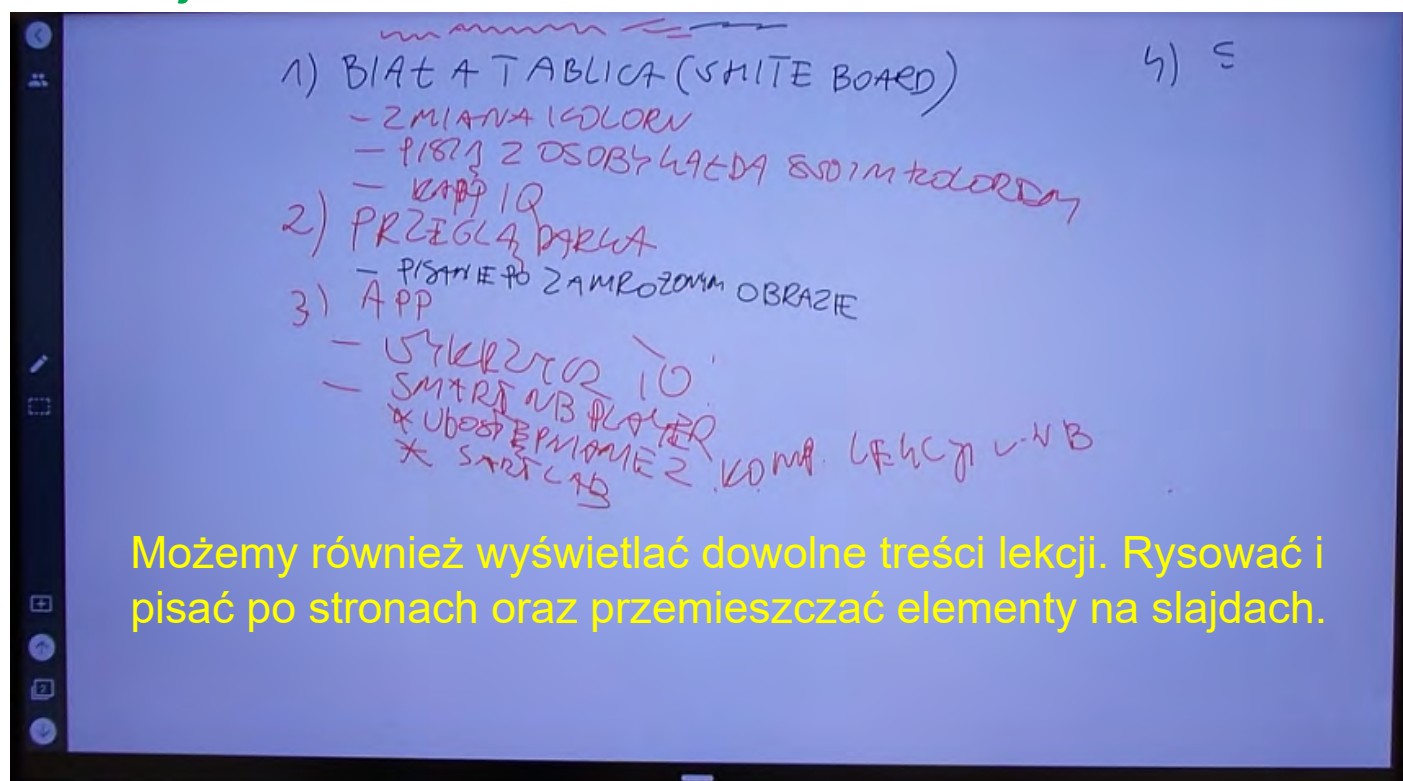 1) BIAŁA TABLICA (WHITE BOARD)
4) E
- ZMIANA KOLORU
- PISZĄ 2 OSOBY KAŻDA SWOIM KOLOREM
- KAPP IQ
2) PRZEGLĄDARKA
- PISANIE PO ZAMROŻONYM OBRAZIE
3) APP
- 
- SMART NB PLAYER
* UDOSTĘPNIANIE Z KOMP. LEKCJI NB
* SMART LAB
Możemy również wyświetlać dowolne treści lekcji. Rysować i
pisać po stronach oraz przemieszczać elementy na slajdach.
2